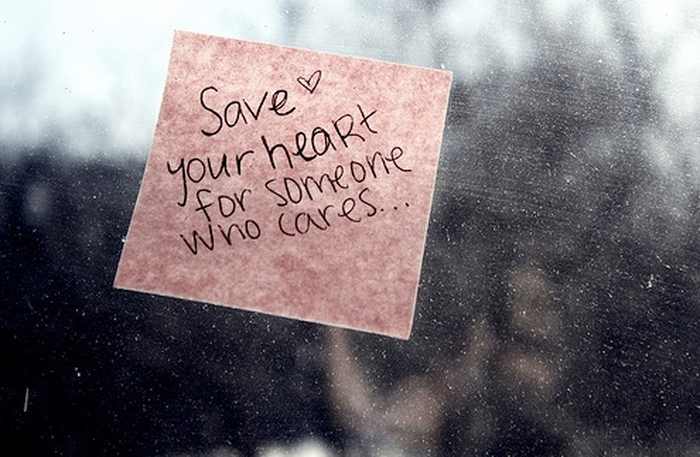 Save
your heart
for someone
who cares...